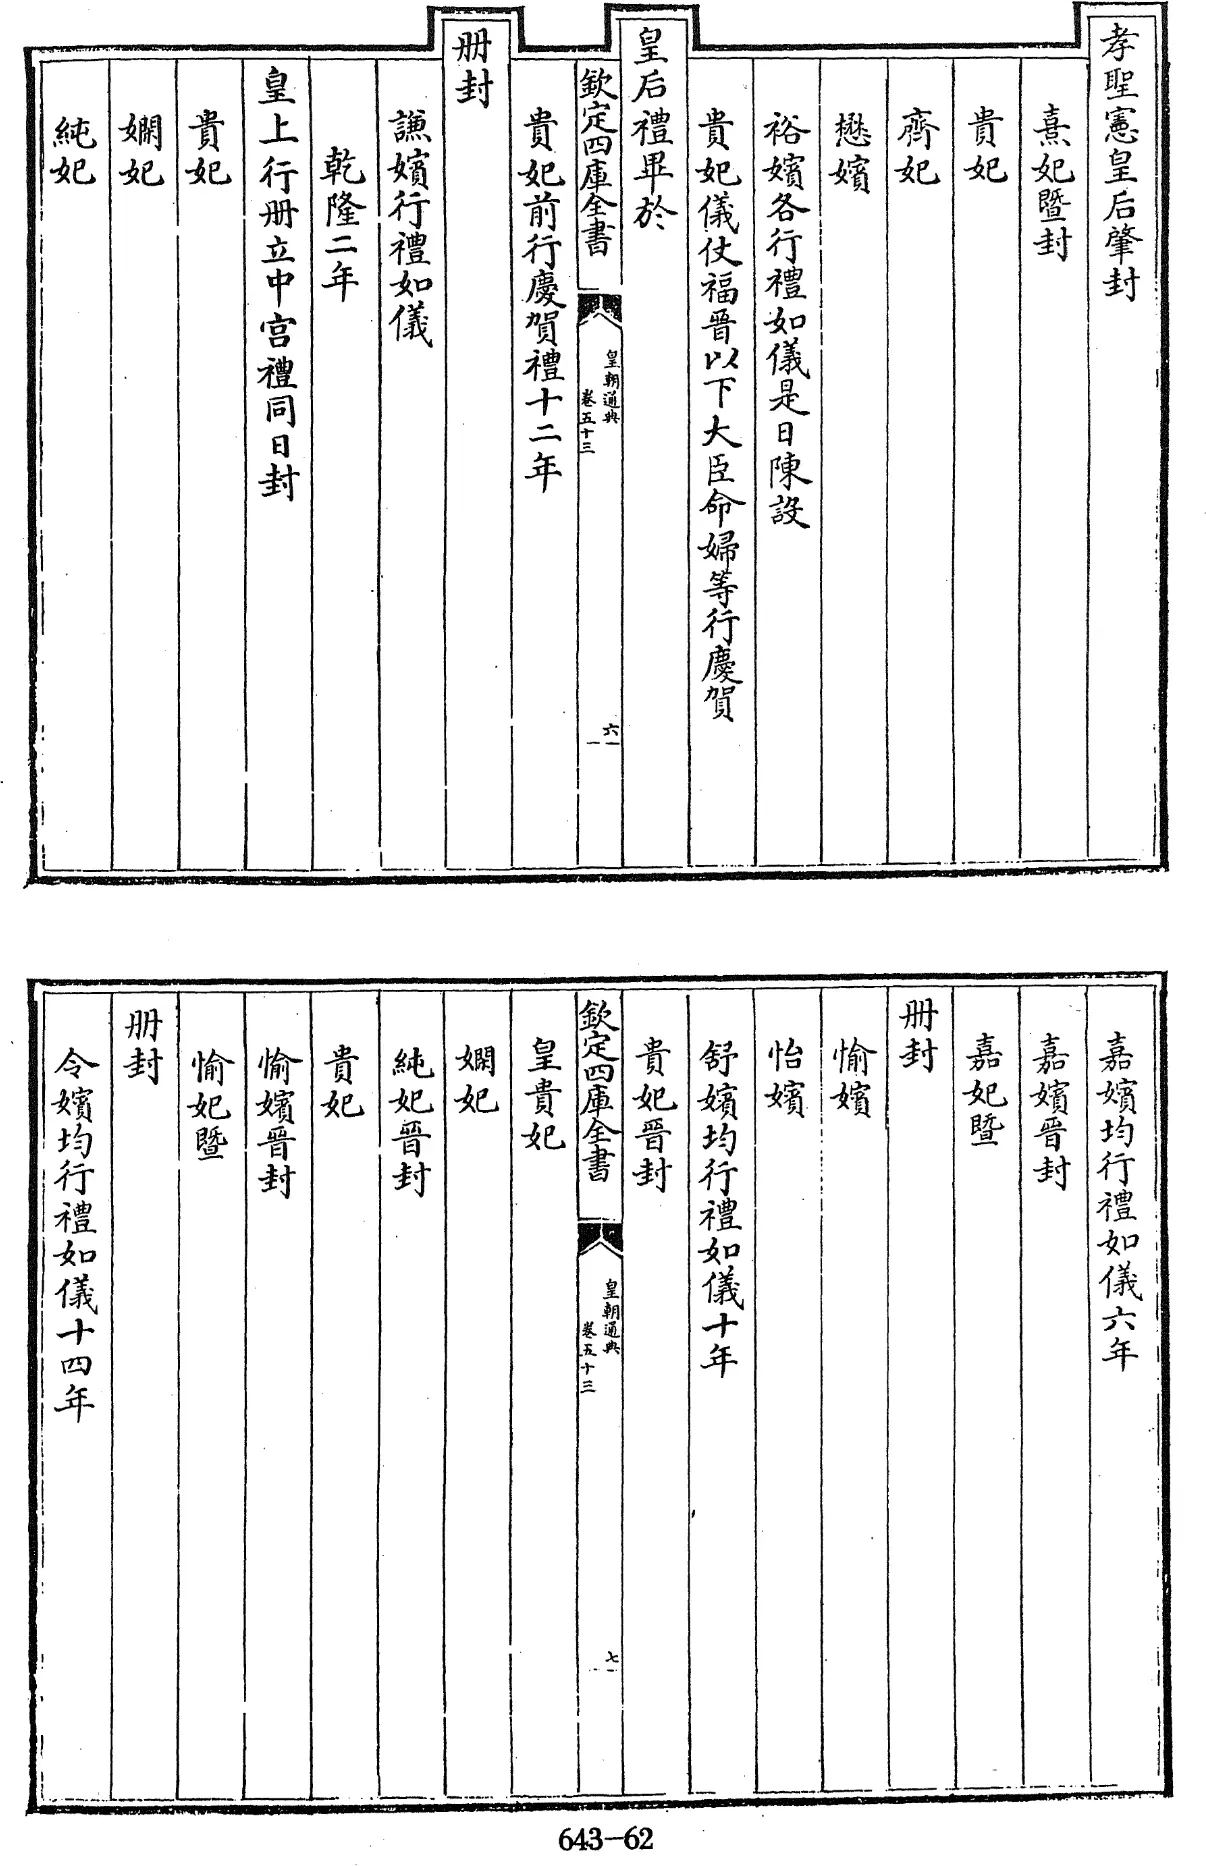 孝聖憲皇后肇封
熹妃暨封
貴妃
齊妃
懋嬪
裕嬪各行禮如儀是日陳設
貴妃儀仗福晋以下大臣命婦等行慶賀
皇后禮畢於
欽定四庫全書
皇朝通典
卷五十三
六
貴妃前行慶賀禮十二年
册封
謙嬪行禮如儀
乾隆二年
皇上行册立中宫禮同日封
貴妃
嫻妃
純妃
嘉嬪均行禮如儀六年
嘉嬪晋封
嘉妃暨
册封
愉嬪
怡嬪
舒嬪均行禮如儀十年
貴妃晋封
欽定四庫全書
皇朝通典
卷五十三
七
皇貴妃
嫻妃
純妃晋封
貴妃
愉嬪晋封
愉妃暨
册封
令嬪均行禮如儀十四年
643-62